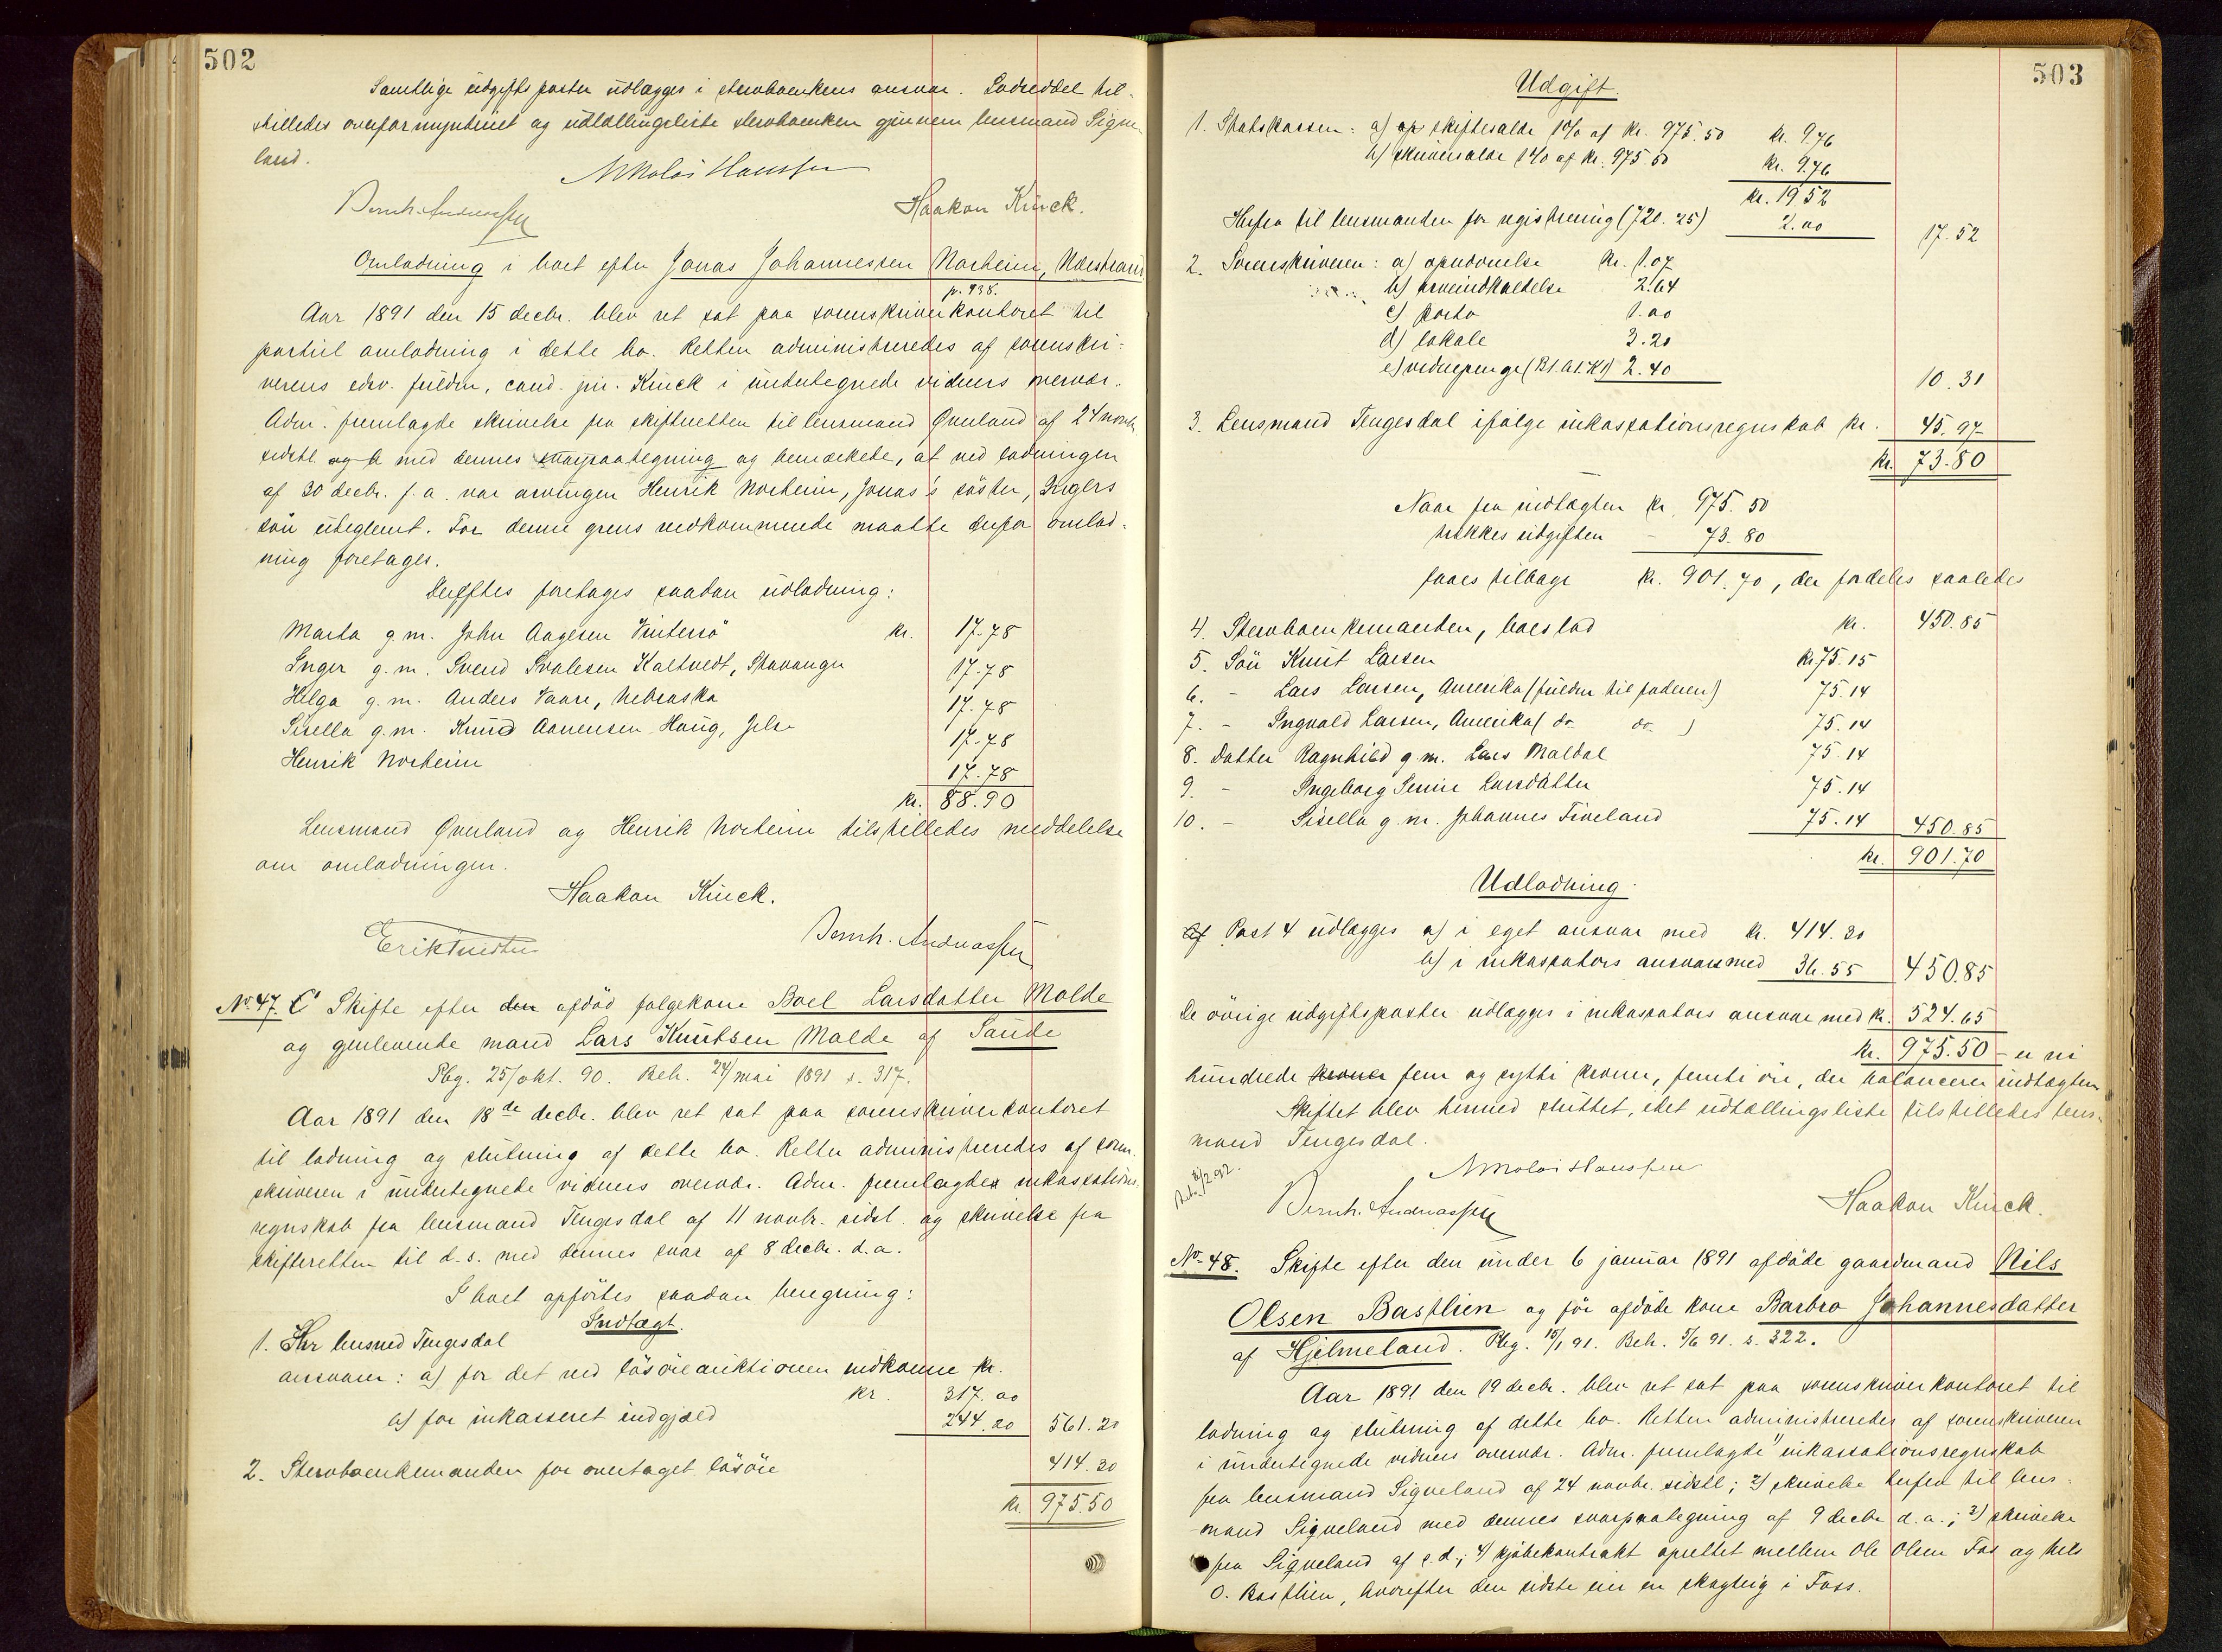 502
Samtlige udgiftsposter udlægges i stervboenkens ansvar. Lodseddel til-
stilledes overformynderiet og udtællingsliste stervboenken gjennem lensmand Sigve-
land.
Nikolai Hanssen
Bernh. Andreassen Haakon Kinck.
Omlodning i boet efter Jonas Johannessen Norheim, Nærstrand
p. 438.
Aar 1891 den 15 decbr. blev ret sat paa sorenskriverkontoret til
partiel omlodning i dette bo. Retten administreredes af sorenskri-
verens edsv. fuldm., cand. jur. Kinck i undertegnede vidners overvær.
Adm. fremlagde skrivelse fra skifteretten til lensmand Øverland af 24 novbr.
sidstl. med dennes svarpaategning og bemærkede, at ved lodningen
af 30 decbr. f. a. var arvingen Henrik Norheim, Jonas's søster, Ingers
søn uteglemt. For denne grens vedkommende maatte derfor omlod-
ning foretages.
Derefter foretages saadan udlodning:
Marta g. m. John Aagesen Vintersø kr. 17.78
Inger g. m. Svend Svalesen Kaltvedt, Stavanger 17.78
Helga g. m. Anders Vaare, Nebraska 17.78
Sisella g. m. Knud Aanensen Haug, Jelse 17.78
Henrik Norheim 17.78
kr. 88.90
Lensmand Øverland og Henrik Norheim tilstilledes meddelelse
om omlodningen.
Haakon Kinck.
Bernh. Andreassen
No. 47. Skifte efter den afdød folgekone Boel Larsdatter Molde
og gjenlevende mand Lars Knutsen Molde af Saude
Pbg. 25/okt. 90. Beh. 24/mai 1891 s. 317.
Aar 1891 den 18de decbr. blev ret sat paa sorenskriverkontoret
til lodning og slutning af dette bo. Retten administreredes af soren-
skriveren i undertegnede vidners overvær. Adm. fremlagde inkassations-
regnskab fra lensmand Tengesdal af 11 novbr. sidstl. og skrivelse fra
skifteretten til d. s. med dennes svar af 8 decbr. d. a.
I boet opførtes saadan beregning:
Indtægt.
1. Hr lensmed Tengesdal
ansvarer: a) for det ved løsøreauktionen indkomne kr.
kr. 317.00
b) for inkasseret indgjæld 244.20 561.20
2. Stervboenkemanden for overtaget løsøre 414.30
kr. 975.50
503
Udgift.
1. Statskassen: a) skiftesalær 1% af kr. 975.50 kr. 9.76
b) skriversalær 1% af kr. 975.50 kr. 9.76
kr. 19.52
Herfra til lensmanden for registrering (720.25) 2.00 17.52
2. Sorenskriveren: a) opnævnelse kr. 1.07
b) arveindkaldelse 2.64
c) porto 1.00
d) lokale 3.20
e) vidnepenge (B1.A1.K1) 2.40 10.31
3. Lensmand Tengesdal ifølge inkassationsregnskab kr. 45.97
kr. 73.80
Naar fra indtægten kr. 975.50
trækkes udgiften - 73.80
faaes tilbage kr. 901.70, der fordeles saaledes
4. Stervboenkemanden, boeslod kr. 450.85
5. Søn Knut Larsen kr. 75.15
6. - Lars Larsen, Amerika (fuldm. til faderen) 75.14
7. - Ingvald Larsen, Amerika (do do) 75.14
8. Datter Ragnhild g. m. Lars Maldal 75.14
9. - Ingeborg Serine Larsdatter 75.14
10. - Sisella g. m. Johannes Fiveland 75.14 450.85
kr. 901.70
Udlodning.
Af Post 4 udlægges a) i eget ansvar med kr. 414.30
b) i inkassators ansvar med 36.55 450.85
De øvrige udgiftsposter udlægges i inkassators ansvar med kr. 524.65
kr. 975.50 - er ni
hundrede kroner fem og sytti kroner, femti øre, der balancerer indtægten
Skiftet blev hermed sluttet, idet udtællingsliste tilstilledes lens-
mand Tengesdal.
Nikolai Hanssen
Bernh. Andreassen Haakon Kinck.
No. 48. Skifte efter den under 6 januar 1891 afdøde gaardmand Nils
Olsen Bastlien og før afdøde kone Barbro Johannesdatter
af Hjelmeland. Pbg. 15/1 91. Beh. 5/6 91. s. 322.
Aar 1891 den 19 decbr. blev ret sat paa sorenskriverkontoret til
lodning og slutning af dette bo. Retten administreredes af sorenskriveren
i undertegnede vidners overvær. Adm. fremlagde 1) inkassationsregnskab
fra lensmand Sigveland af 24 novbr. sidstl; 2) skrivelse herfra til lens-
mand Sigveland med dennes svarpaategning af 9 decbr d. a.; 3) skrivelse
fra Sigveland af s. d.; 4) kjøbekontrakt oprettet mellem Ole Olsen Fos og Nils
O. Bastlien, hvorefter den sidste eier en skogteig i Foss.